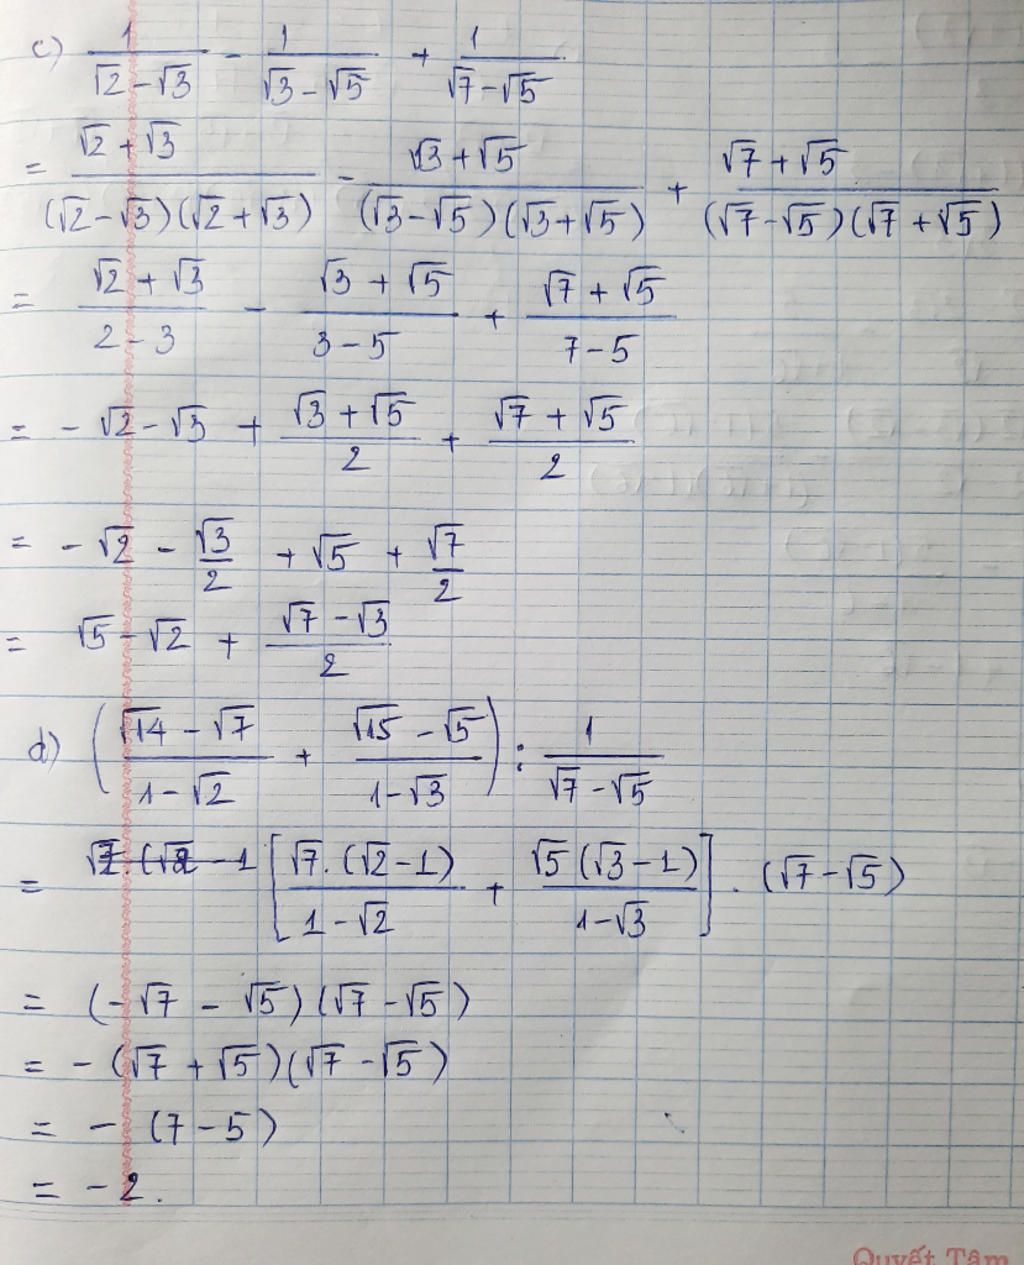 c) 1/(√2-√3) - 1/(√3-√5) + 1/(√7-√5)
= (√2+√3)/((√2-√3)(√2+√3)) - (√3+√5)/((√3-√5)(√3+√5)) + (√7+√5)/((√7-√5)(√7+√5))
= (√2+√3)/(2-3) - (√3+√5)/(3-5) + (√7+√5)/(7-5)
= -√2-√3 + (√3+√5)/2 + (√7+√5)/2
= -√2 - √3/2 + √5 + √7/2
= √5-√2 + (√7-√3)/2
d) ((√14-√7)/(1-√2) + (√15-√5)/(1-√3)) : 1/(√7-√5)
= [√7.(√2-1)/(1-√2) + √5(√3-1)/(1-√3)] . (√7-√5)
= (-√7-√5)(√7-√5)
= -(√7+√5)(√7-√5)
= - (7-5)
= -2.
Quyết Tâm